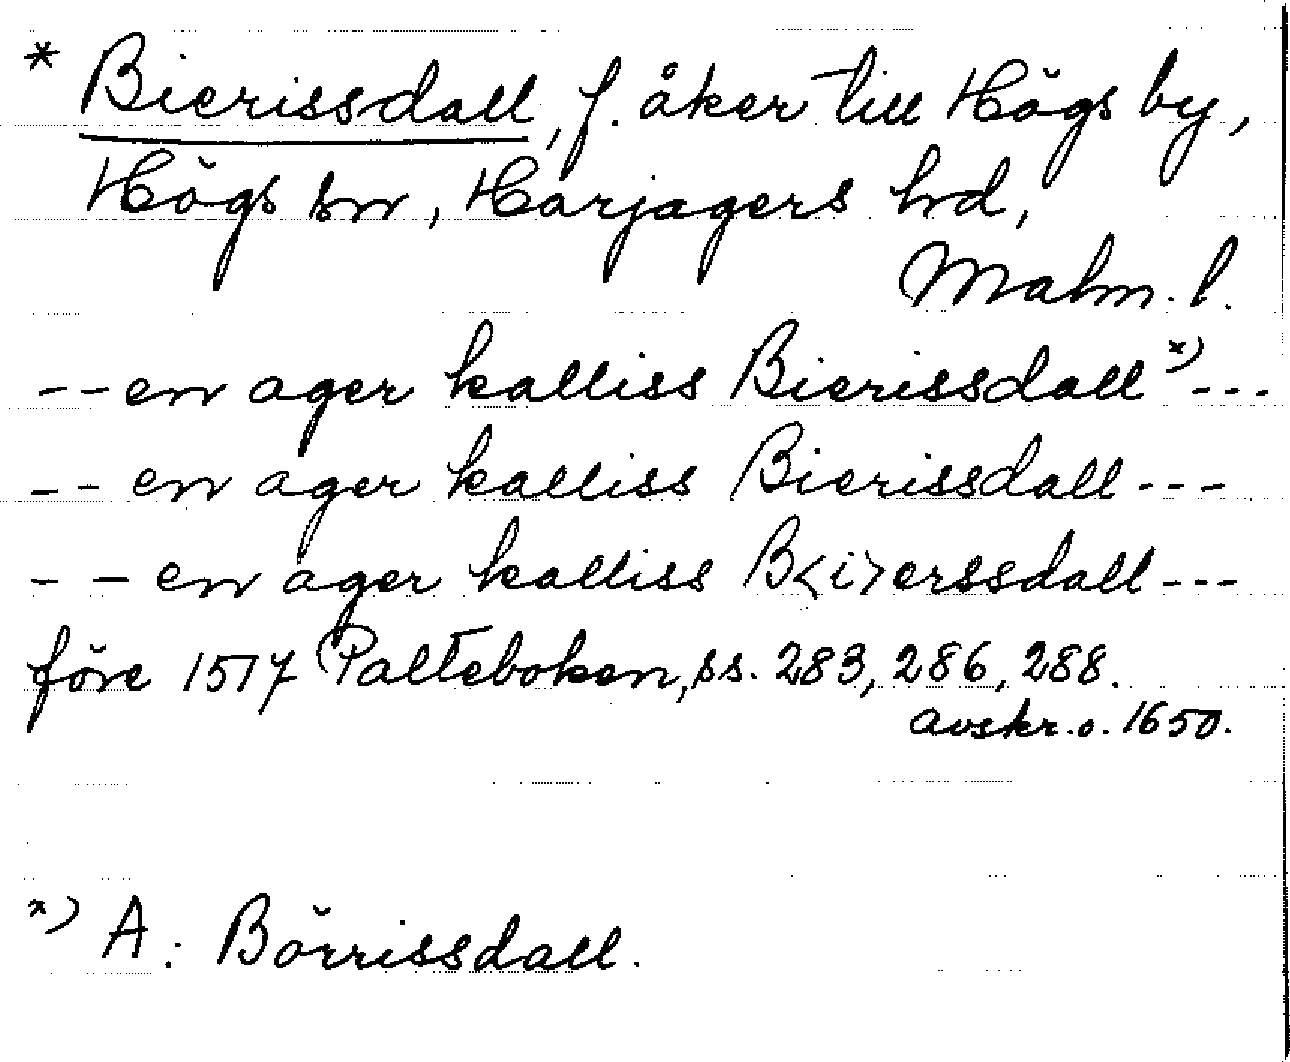 * Bierissdall, f. åker till Högs by,
Högs sn, Harjagers hd,
Malm. l.
-- en ager kalliss Bierissdall x) ---
-- en ager kalliss Bierissdall ---
-- en ager kalliss B<i>erssdall ---
före 1517 Palteboken, ss. 283, 286, 288.
avskr. o. 1650.
x) A: Börrissdall.